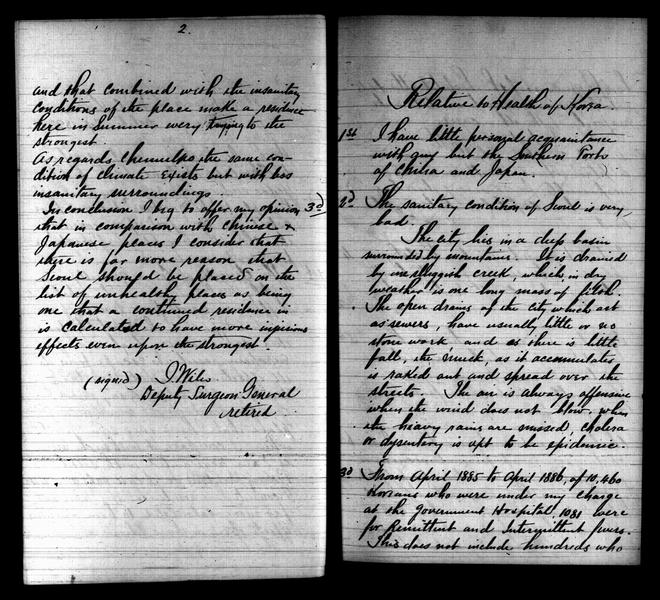 2.
and that combined with the insanitary
conditions of the place make a residence
here in Summer very trying to the
strongest.
As regards Chemulpo the same con-
dition of climate exists but with less
insanitary surroundings.
In conclusion I beg to offer my opinion
that in comparison with Chinese &
Japanese places I consider that
there is far more reason that
Seoul should be placed on the
list of unhealthy places as being
one that a continued residence in
is calculated to have more injurious
effects even upon the strongest.
(signed) J Wiles
Deputy Surgeon General
retired
Relative to Health of Korea.
1st I have little personal acquaintance
with any but the Southern Ports
of China and Japan.
3d) 2d The sanitary condition of Seoul is very
bad.
The city lies in a deep basin
surrounded by mountains. It is drained
by one sluggish creek, which in dry
weather is one long mass of filth.
The open drains of the city which act
as sewers, have usually little or no
stone work, and as there is little
fall, the muck, as it accumulates
is raked out and spread over the
streets. The air is always offensive
when the wind does not blow, when
the heavy rains are missed, cholera
or dysentery is apt to be epidemic.
3d From April 1885 to April 1886, of 10,460
Koreans who were under my charge
at the Government Hospital, 1081 were
for Remittent and Intermittent fevers.
This does not include hundreds who